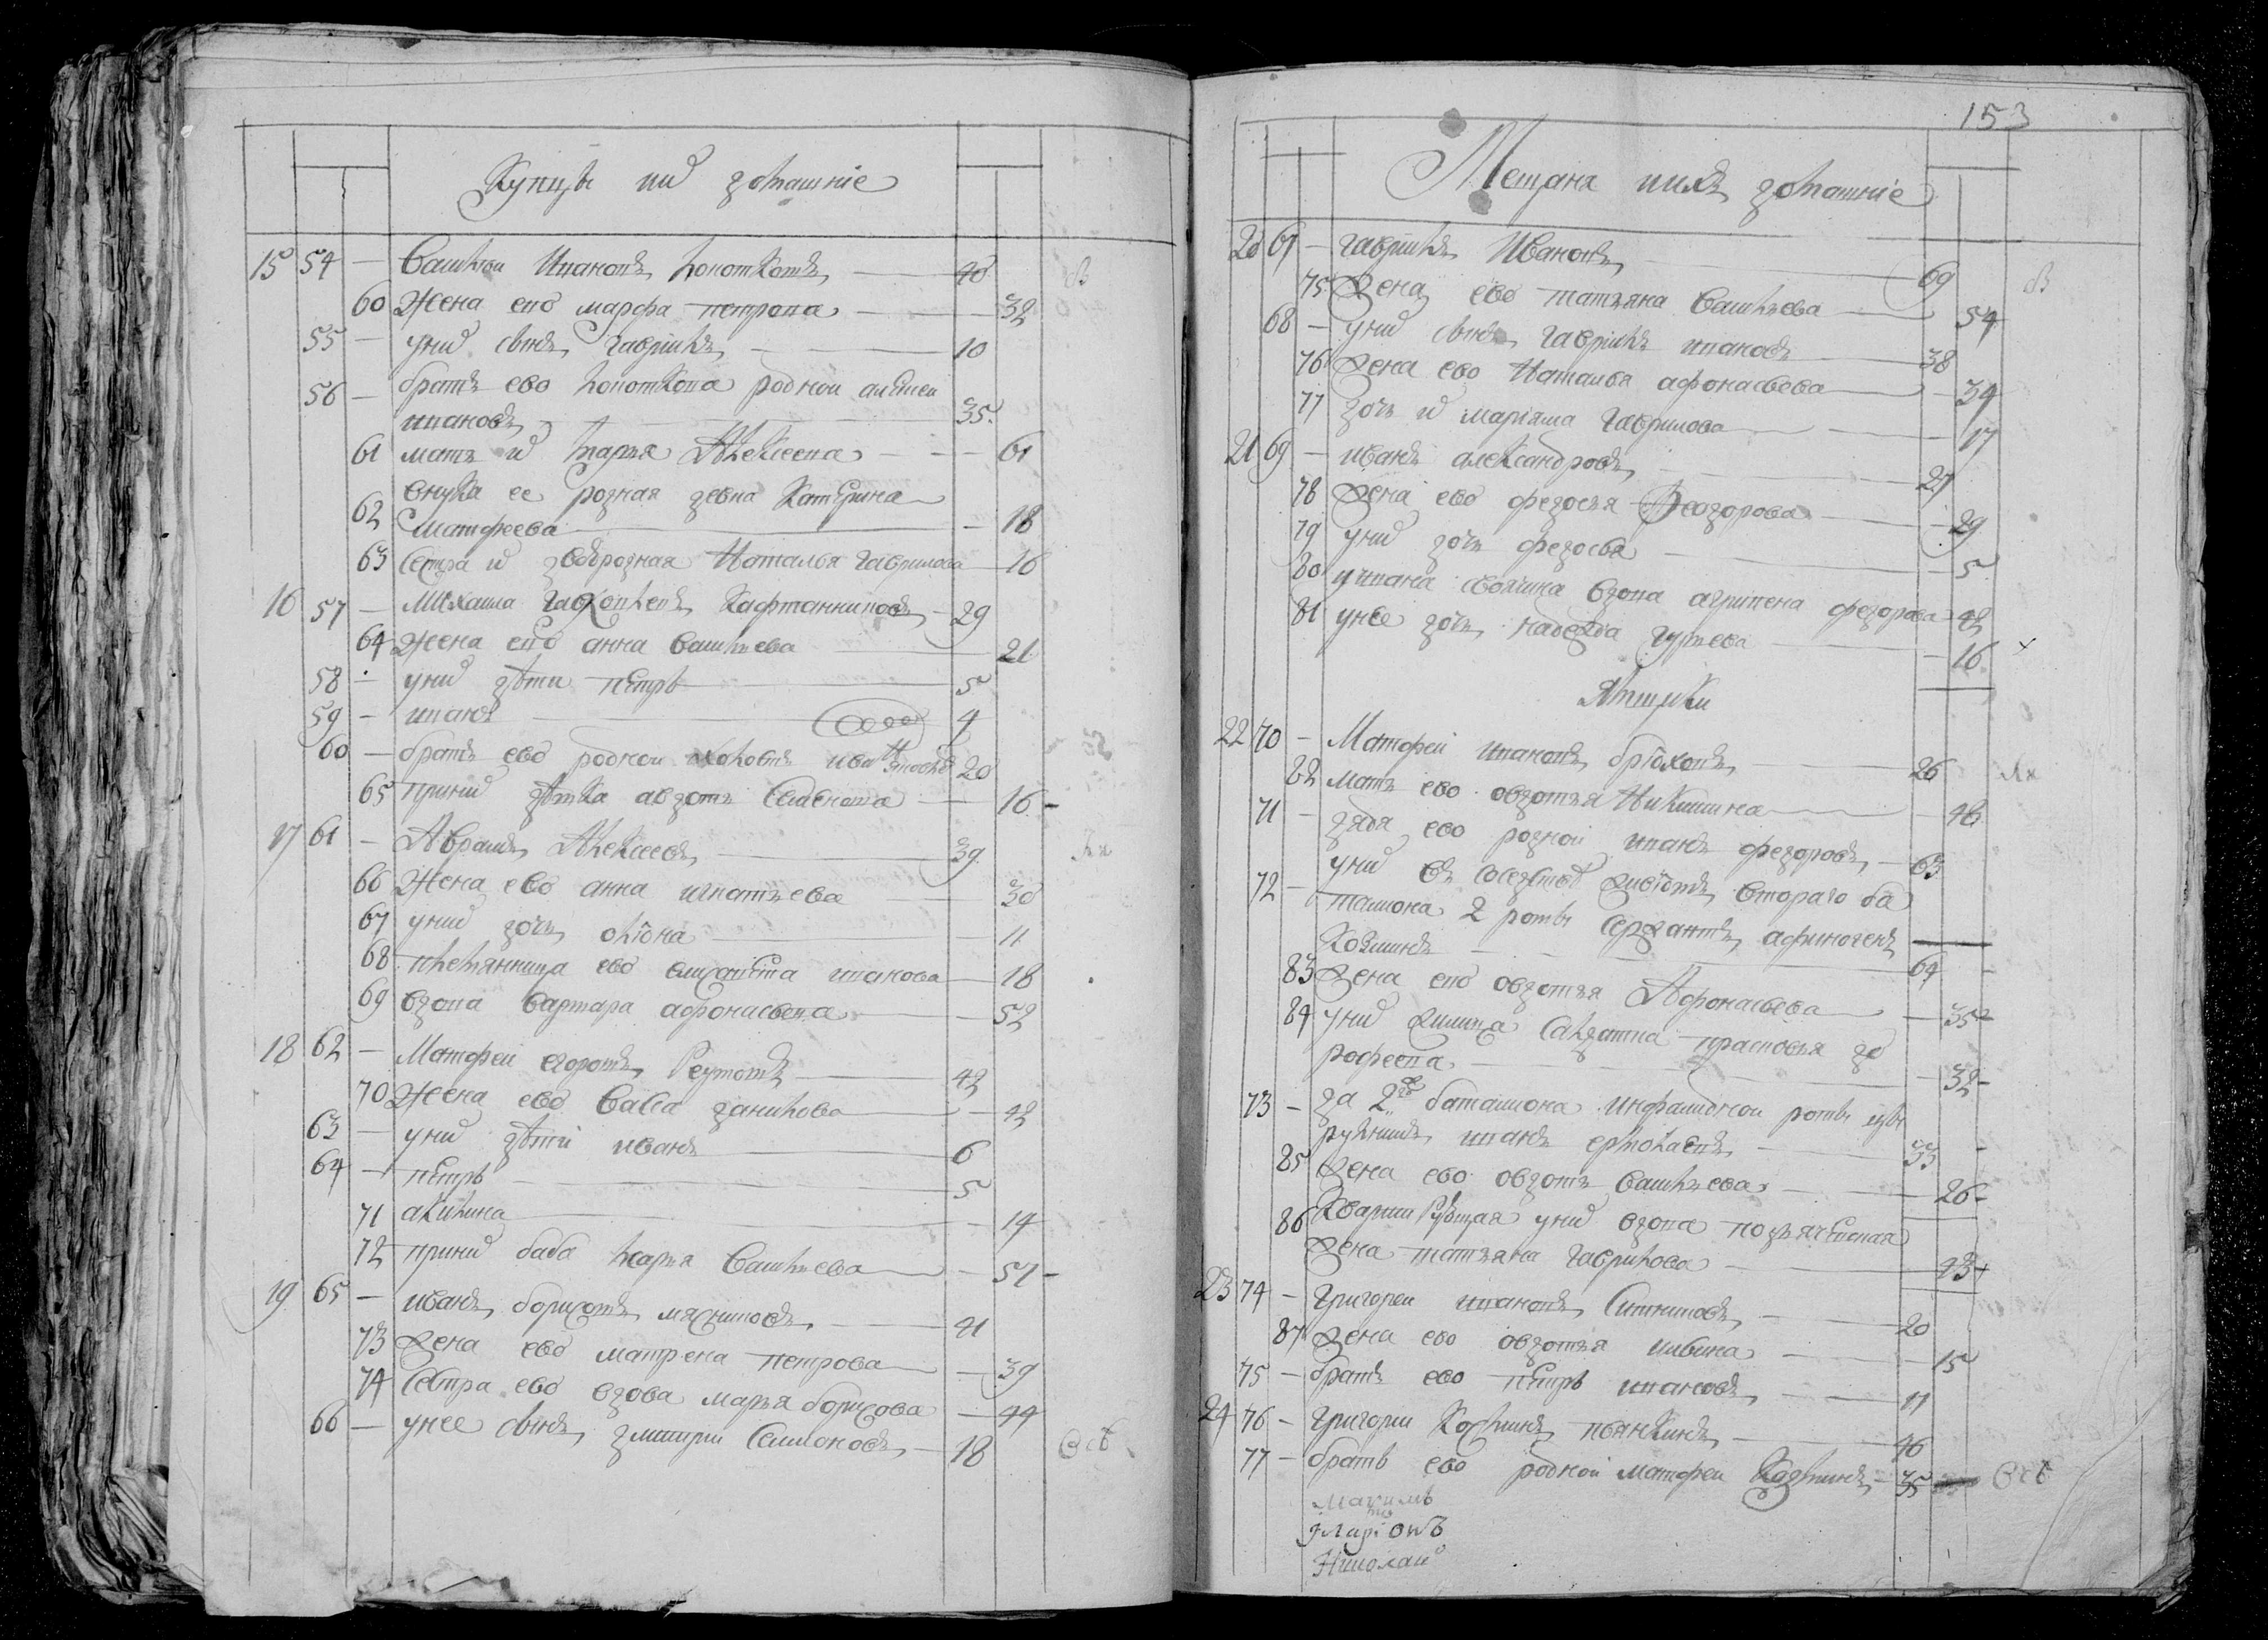 Купцы и и домашние
15 54 — Василеи Ивановъ Болотковъ — 40
60 Жена ево марфа петрова — 32
55 — у них сынъ гаврилъ — 10
56 — братъ ево Болоткова роднои алѣѯеи
ивановъ — 35
61 мать их дарья Алексеева — 61
62 внука ее родная девка катерина
матфеева — 18
63 сестра их двоюродная Наталья гаврилова 16
16 57 — Михаила Яковлевъ Кафтанниковъ — 29
64 Жена ево анна васильева — 21
58 — у них дѣти петръ — 5
59 — иванъ — 4
60 — братъ ево роднои яковъ 20
65 при них девка авдотья — 16
17 61 — Аврамъ Алексеевъ — 39
66 Жена ево анна игнатьева — 30
67 у них дочь олiона — 11
68 племянница ево елисавета иванова — 18
69 вдова варвара афонасьева — 52
18 62 — Матфеи егоровъ Реутовъ — 42
70 Жена ево васса данилова — 42
63 — у них дѣти иванъ — 6
64 — петръ — 5
71 акилина — 14
72 при них баба дарья васильева — 51
19 65 — иванъ борисовъ мясниковъ — 41
73 жена ево матрена петрова — 39
74 сестра ево вдова марья борисова — 44
66 — у нее сынъ дмитрии семионовъ — 18
153
Мещаня и ихъ домашнiе
20 67 — гаврилъ Ивановъ — 69
75 жена ево татьяна васильева — 54
68 — у них сынъ гаврилъ ивановъ — 38
76 жена ево Наталья афонасьева — 34
77 дочь их марiяна гаврилова — 17
21 69 — иванъ александровъ — 27
78 жена ево федосья Феодорова — 29
79 у них дочь федосья — 5
80 у ивана своячина вдова агрипена федорова 42
81 у нее дочь надежда гурьева — 16
Ямщики
22 70 — Матфеи ивановъ брюховъ — 26
82 мать ево овдотья Никитина — 46
71 — дядя ево роднои иванъ федоровъ — 63
72 — у них въ соседствѣ живiотъ втораго ба
талиона 2 роты сержантъ афиногенъ
Козминъ — 64
83 жена ево овдотья Афонасьева — 35
84 у них жилица салдатка прасковья до
рофеева — 32
73 — да 2го баталиона инвалиднои роты цы
рулникъ иванъ ермолаевъ — 33
85 жена ево овдотья васильева — 26
86 квартирующая у них вдова подьяческая
жена татьяна гаврилова — 43
23 74 — Григореи ивановъ Ситниковъ — 20
87 жена ево овдотья ильина — 15
75 — братъ ево петръ ивановъ — 11
24 76 — Григории Козминъ пьянкинъ — 46
77 — братъ ево роднои матфеи Козминъ — 35
Максимъ
Iларiонъ
Николаи